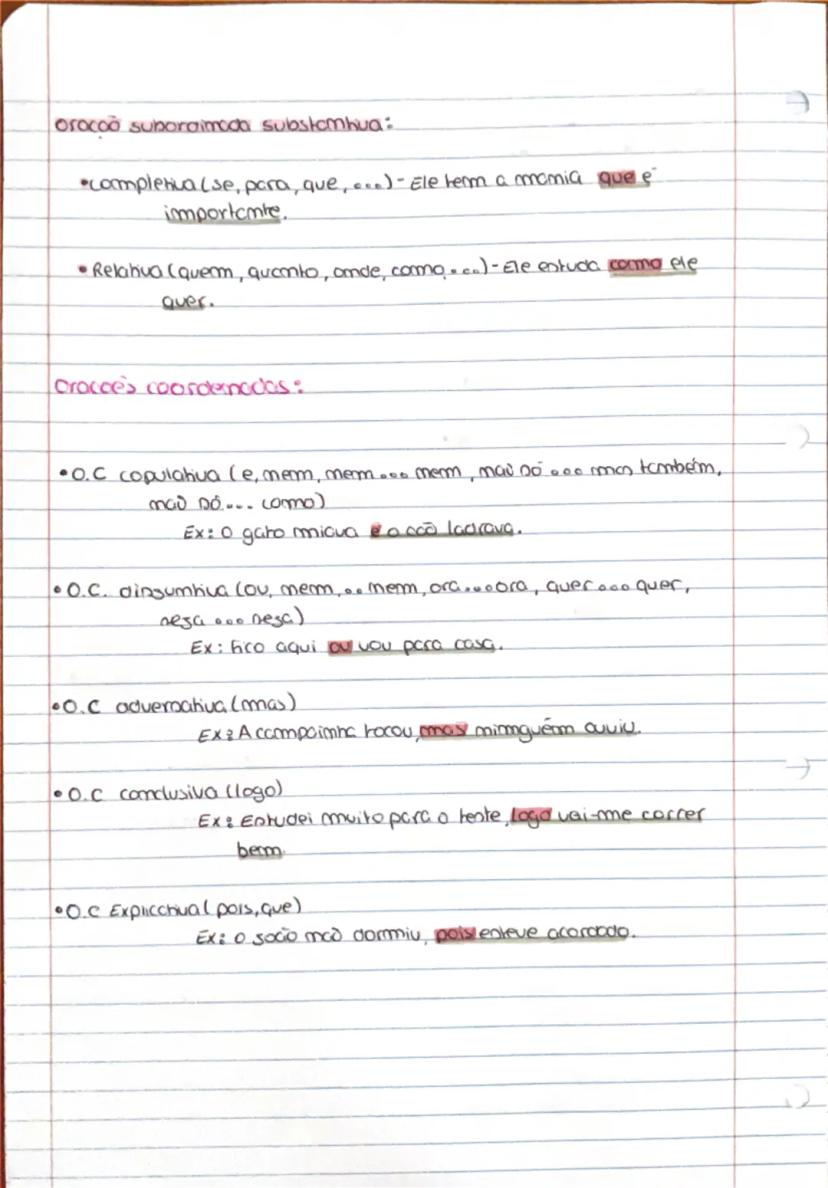 oração subordinada substantiva:
•completiva (se, para, que, ...) - Ele tem a mania que é
importante.
• Relativa (quem, quanto, onde, como, ...) - Ele estuda como ele
quer.
Orações coordenadas:
•O.C copulativa (e, nem, nem ... nem, não só ... mas também,
não só ... como)
Ex: O gato miava e o cão ladrava.
• O.C. disjuntiva (ou, nem, .. nem, ora ... ora, quer ... quer,
seja ... seja)
Ex: fico aqui ou vou para casa.
•O.C adversativa (mas)
Ex: A campainha tocou, mas ninguém ouviu.
• O.C conclusiva (logo)
Ex: Estudei muito para o teste, logo vai-me correr
bem
•O.C Explicativa (pois, que)
Ex: O João não dormiu, pois esteve acordado.